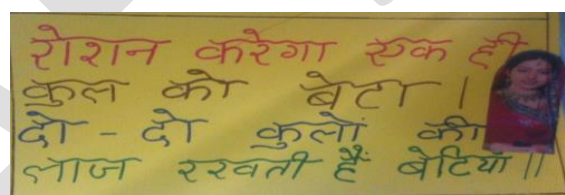 रोशन करेगा एक ही
कुल को बेटा ।
दो - दो कुलों की
लाज रखती हैं बेटियां ॥